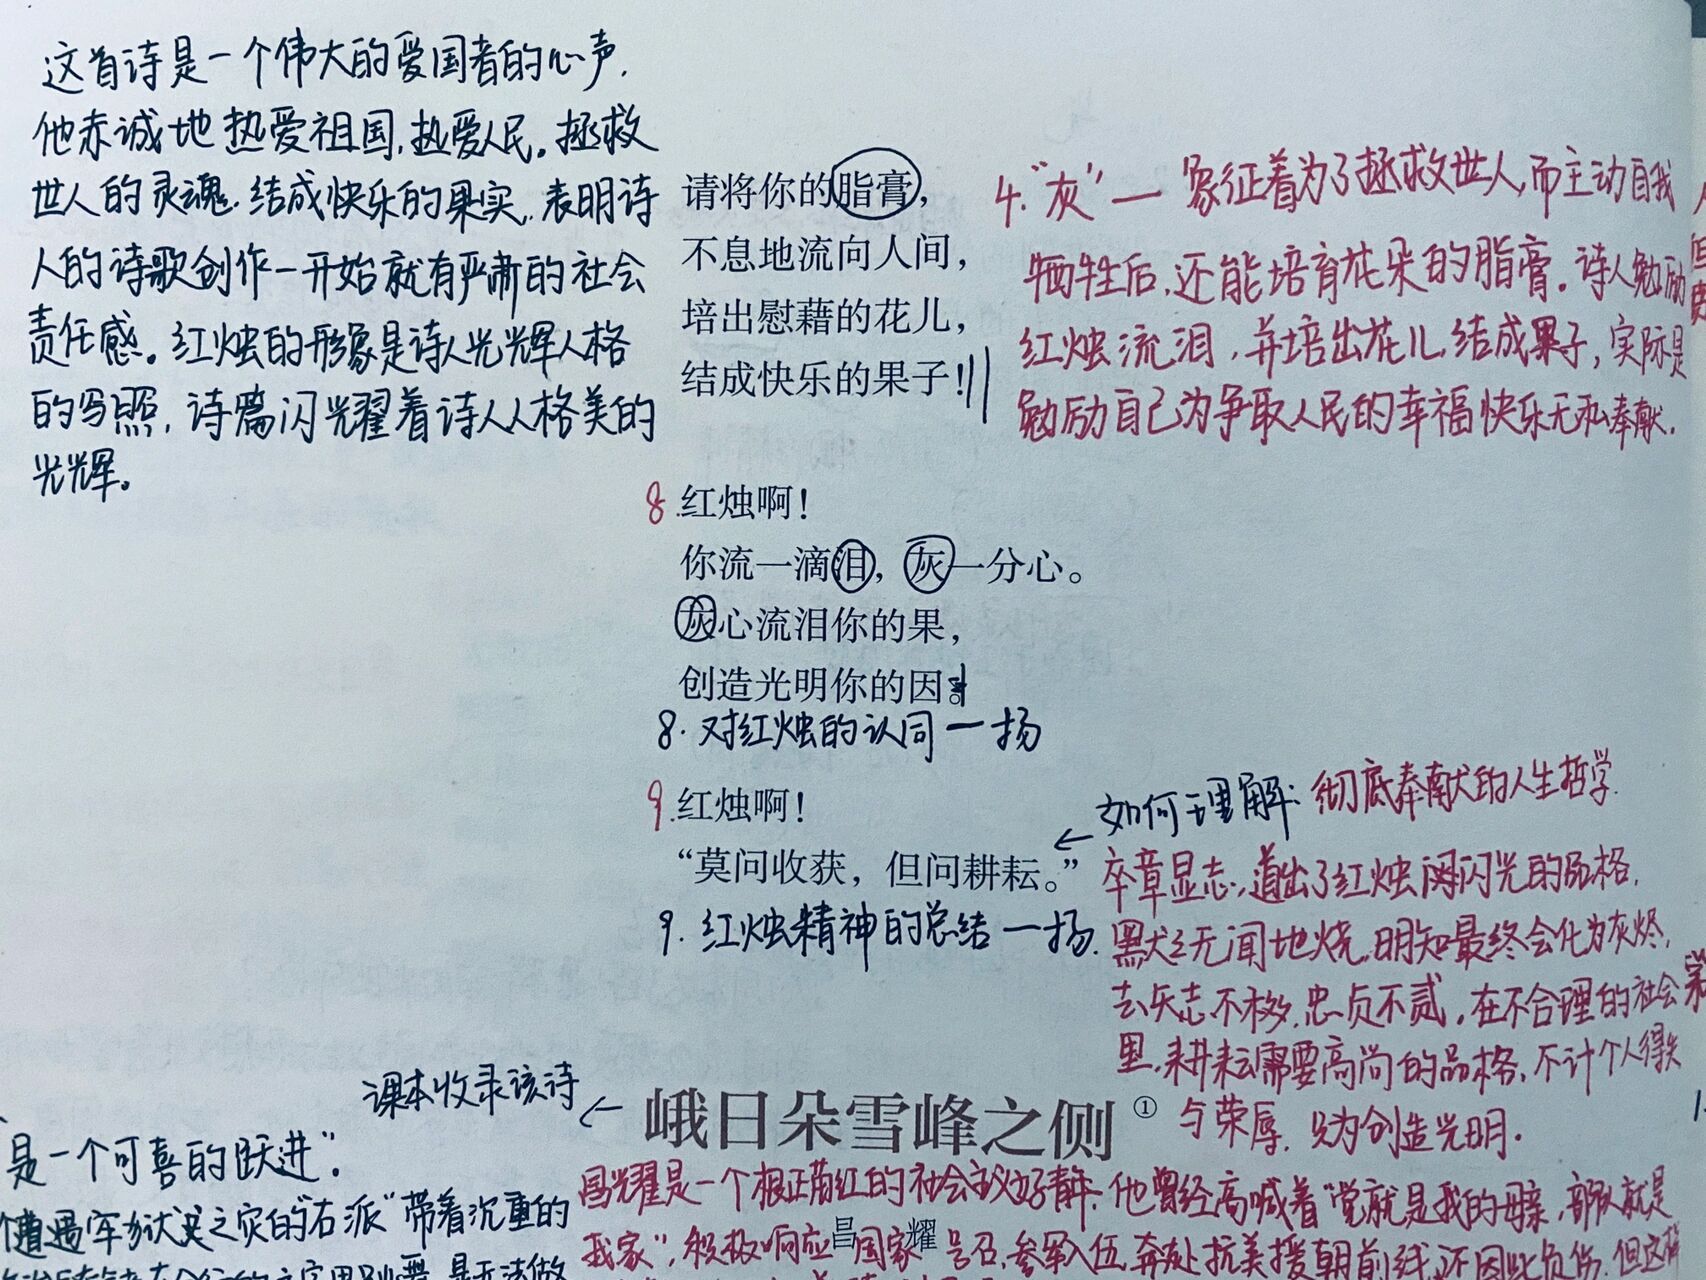 这首诗是一个伟大的爱国者的心声.
他赤诚地热爱祖国,热爱人民。拯救
世人的灵魂.结成快乐的果实.表明诗
人的诗歌创作一开始就有严肃的社会
责任感。红烛的形象是诗人光辉人格
的写照,诗篇闪光耀着诗人人格美的
光辉。
请将你的脂膏，
不息地流向人间，
培出慰藉的花儿，
结成快乐的果子！
4."灰"一象征着为了拯救世人,而主动自我
牺牲后,还能培育花朵的脂膏.诗人勉励
红烛流泪,并培出花儿,结成果子,实际是
勉励自己为争取人民的幸福快乐无私奉献.
8.红烛啊！
你流一滴泪，灰一分心。
灰心流泪你的果，
创造光明你的因。
8.对红烛的认同一扬
9.红烛啊！
“莫问收获，但问耕耘。”
9.红烛精神的总结一扬.
如何理解:彻底奉献的人生哲学.
卒章显志,道出了红烛闪光的品格.
默默无闻地烧.明知最终会化为灰烬,
去矢志不移.忠贞不贰.在不合理的社会
里,耕耘需要高尚的品格,不计个人得失
与荣辱.只为创造光明.
课本收录该诗
峨日朵雪峰之侧①
昌耀
是一个可喜的跃进".
遭遇牢狱之灾的"右派"带着沉重的
昌耀是一个根正苗红的社会主义好青年.他曾经高喊着"党就是我的母亲,部队就是
我家",积极响应国家号召,参军入伍,奔赴抗美援朝前线,还因此负伤.但这样